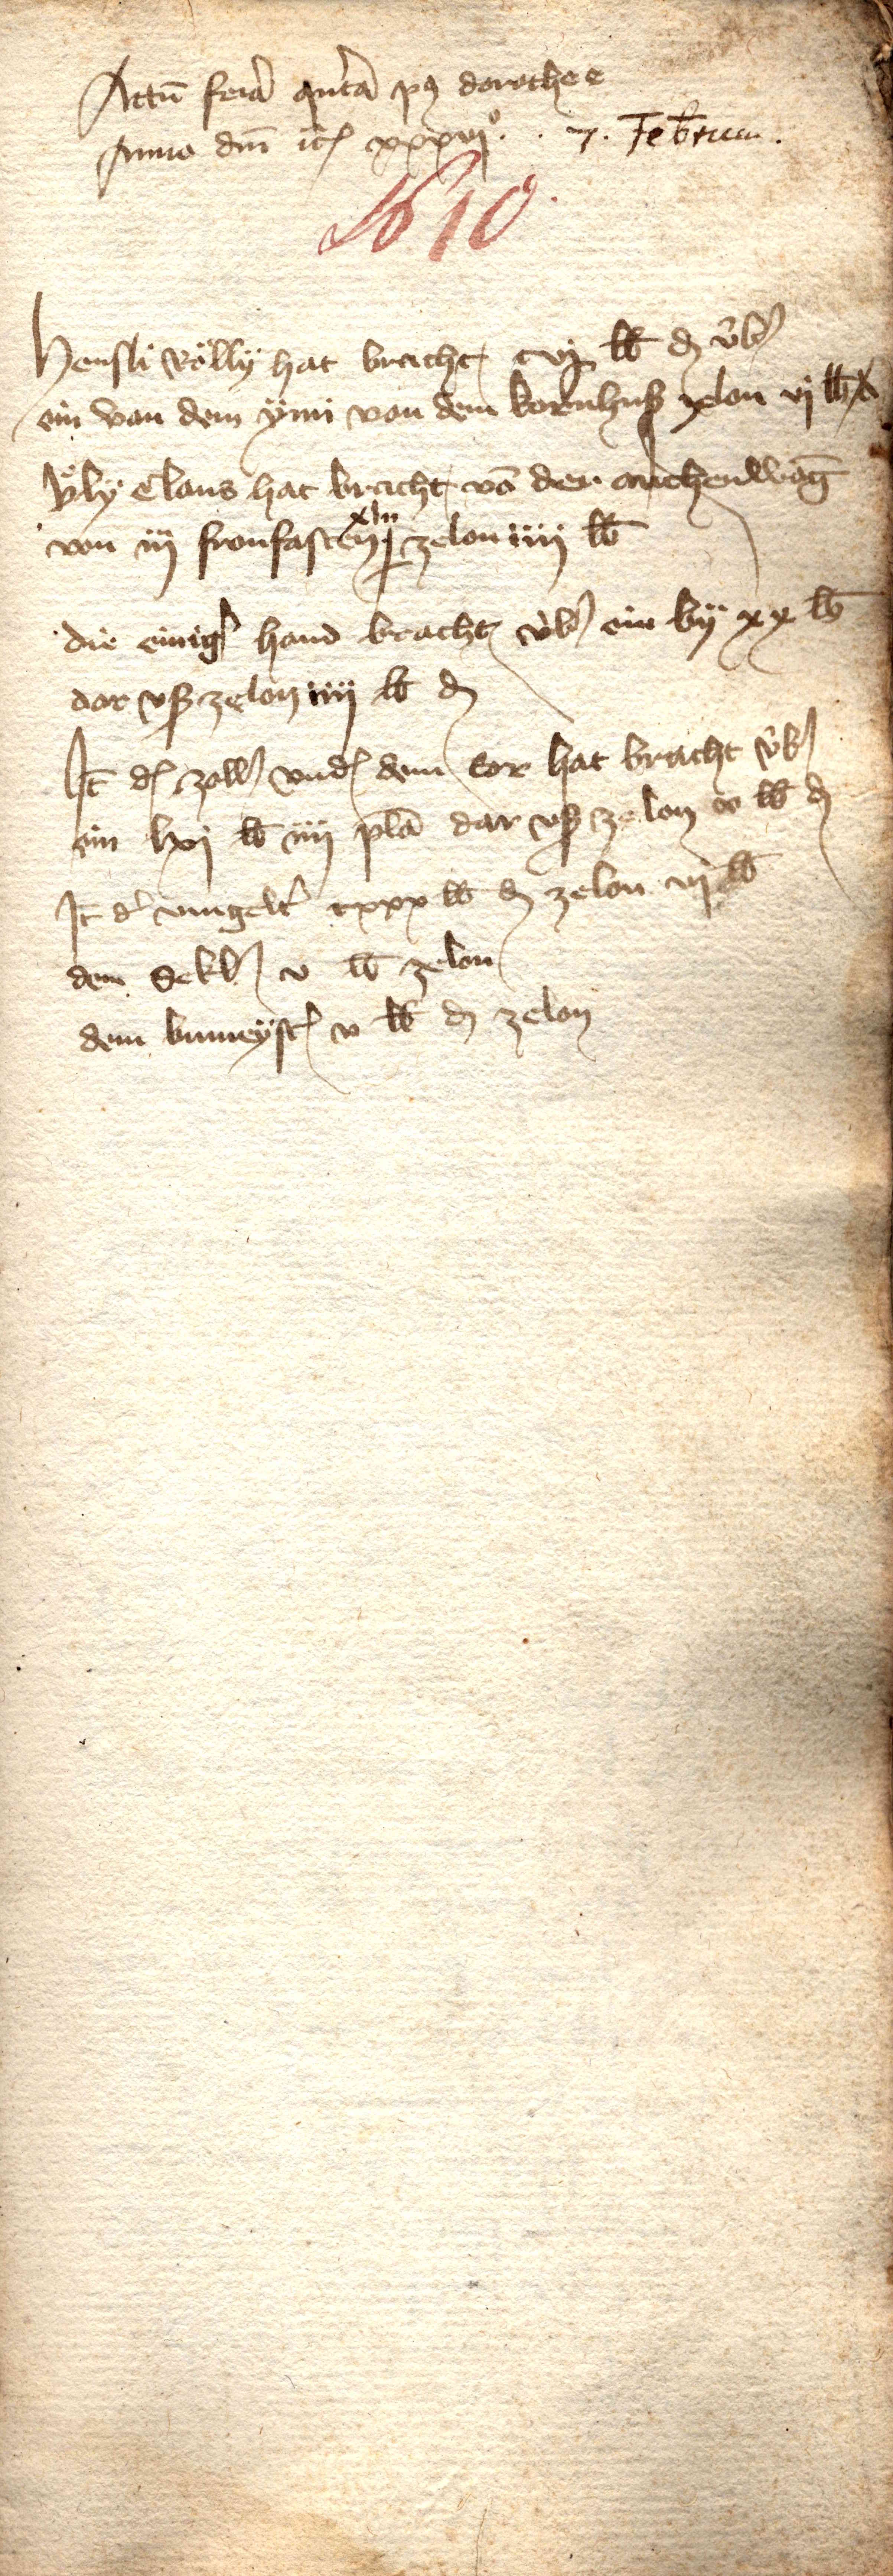 Actū feria qnta pꝰ dorothee
Anno dm̄ xxxvjº . 7. Februar.
No 10.
Hensli Rölly hat bracht cvj lb d vb
ein von dem ÿmi von dem kornhuß zelon vj lb
Vͦly Claus hat bracht vō der anckenwag
von iij fronfasten xlij zelon iiij lb
die einig hand bracht vb ein by xx lb
dar vß zelon iiij lb d
It d zoll vnd dem tor hat bracht vb
ein lxj lb iiij pla dar vß zelon v lb d
It d vmgelt cxxx lb d zelon vj lb
dem sekl v lb zelon
dem bumeÿst v lb d zelon